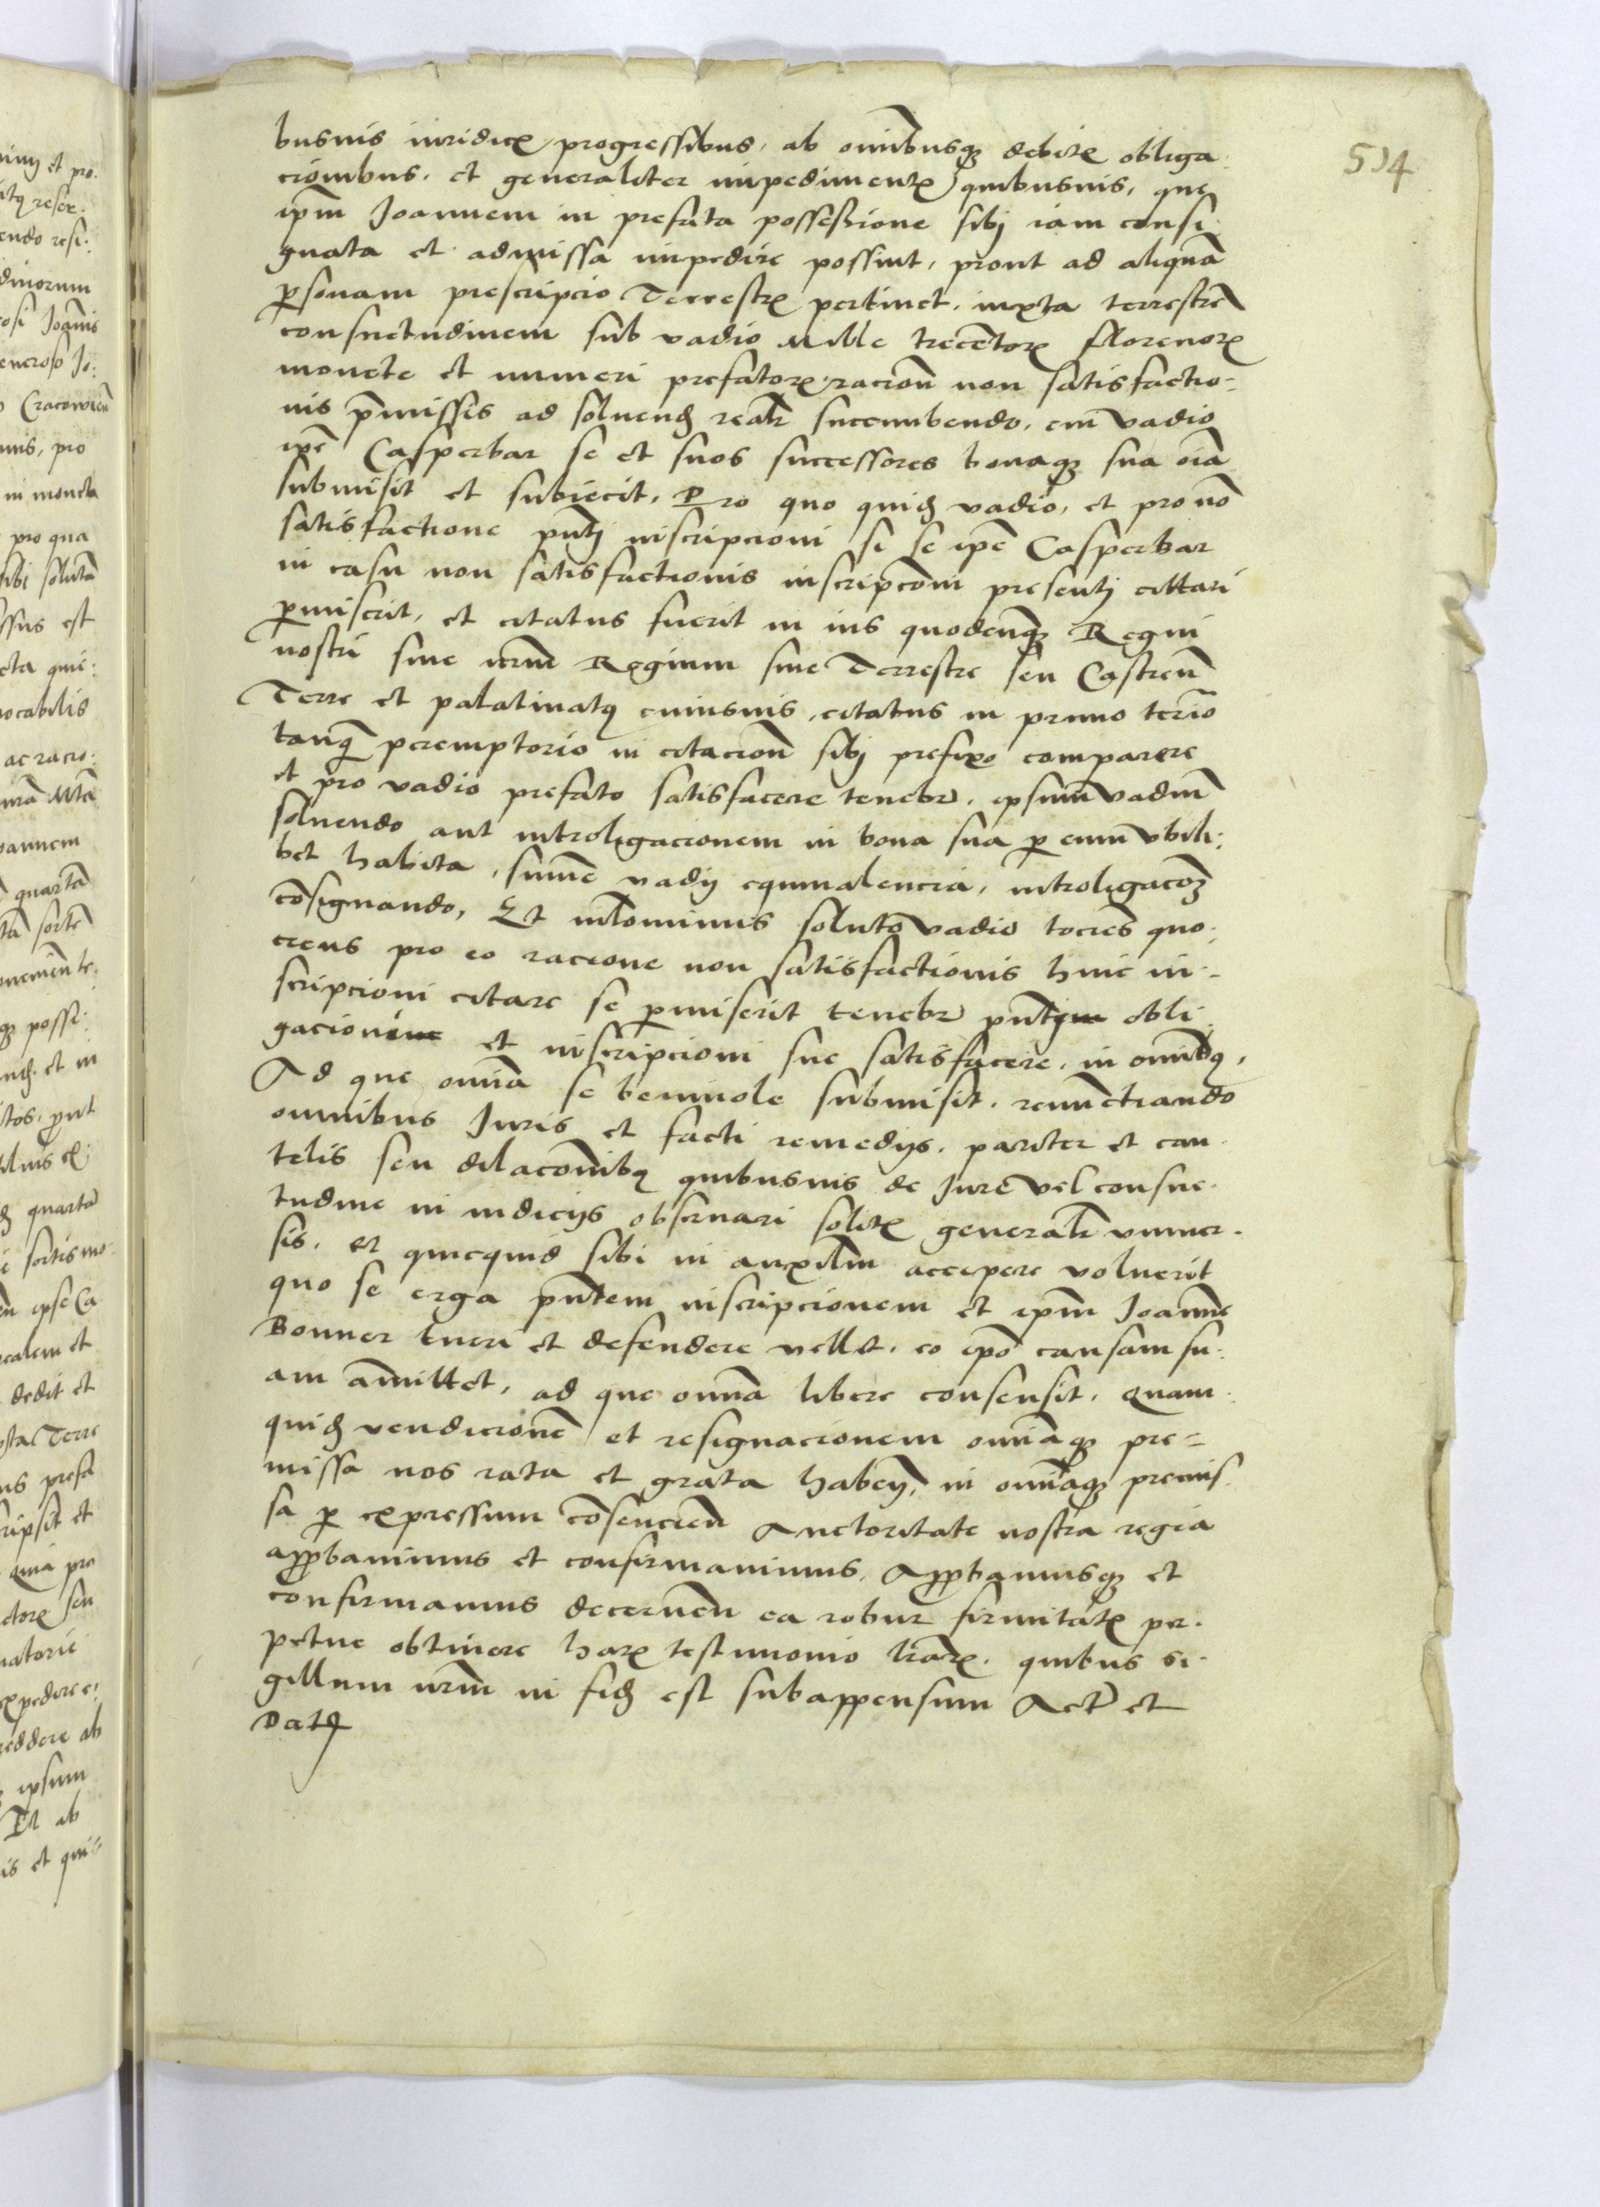 514
busvis iuridicꝭ progressibus, ab om̄ibusqꝫ debitꝭ obliga
cionibus, et generaliter impedimentꝭ quibusvis, que
ip̄m Joannem in prefata possessione sibj iam consi
gnata et admissa impedire possint, prout ad aliquā
ꝑsonam prescripcio Terrestrꝭ pertinet, iuxta terrestrē
consuetudinem sub vadio Mille trecētorꝭ florenorꝭ
monete et numeri prefatorꝭ, racion̄ non satisfactio-
nis p̄missis ad soluend̄ realr̄ succumbendo, cui vadio
ip̄e Casperbar se et suos successores bonaqꝫ sua oīa
submisit et subiecit, Pro quo quid̄ vadio, et pro nō
satisfactione pn̄tj inscripcioni si se ip̄e Casperbar
in casu non satisfactionis inscripcōni presentj cittari
ꝑmiserit, et citatus fuerit in ius quodcunqꝫ Regni
nostri siue nr̄m Regium siue Terrestre seu Castren̄
Terre et palatinatꝰ cuiusvis, citatus in primo termīo
tanqꝫ peremptorio in citacion̄ sibj prefixo comparere
et pro vadio prefato satisfacere tenebr̄, ipsum vadiū
soluendo aut introligacionem in bona sua ꝑ eum vbili:
bet habita, sum̄e vadij equiualencia, introligacōꝫ
cōsignando, Et nīlominus solutō vadio tocies quo:
ciens pro eo racione non satisfactionis huic in-
scripcioni citare se ꝑmiserit tenebr̄ pn̄tj obli
gacioni et inscripcioni sue satisfacere, in om̄ibꝰ,
Ad que om̄ia se beniuole submisit, renūctiando
omnibus Juris et facti remedijs, pariter et cau
telis seu dilacōnibꝰ quibusvis de Jure vel consue
tudine in iudicijs obseruari solitꝭ generalr̄ vniuer
sis, et quicquid sibi in auxiliū accipere voluerit
quo se erga pn̄tem inscripcionem et ip̄m Joannē
Bonner tueri et defendere vellet, eo ip̄o causam su:
am āmittet, ad que om̄ia libere consensit, Quam
quid̄ vendicionē et resignacionem om̄iaqꝫ pre-
missa nos rata et grata haben̄, in om̄iaqꝫ premis
sa ꝑ expressum cōsencien̄ Auctoritate nostra regia
aꝓbauimus et confirmauimus, Aꝓbamusqꝫ et
confirmamus decernen̄ ea robur firmitatꝭ per
petue obtinere harꝭ testimonio lr̄arꝭ, quibus si
gillum nr̄m in fid̄ est subappensum Act̄ et
Datꝭ